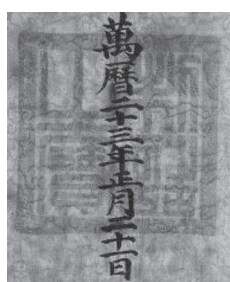 萬曆二十三年正月二十一日